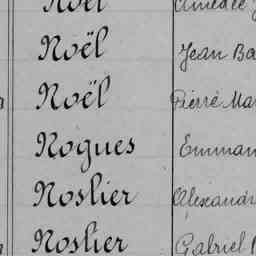 Noël Amédée
Noël Jean Ba
Noël Pierre Ma
Nogues Emman
Noslier Alexandr
Noslier Gabriel